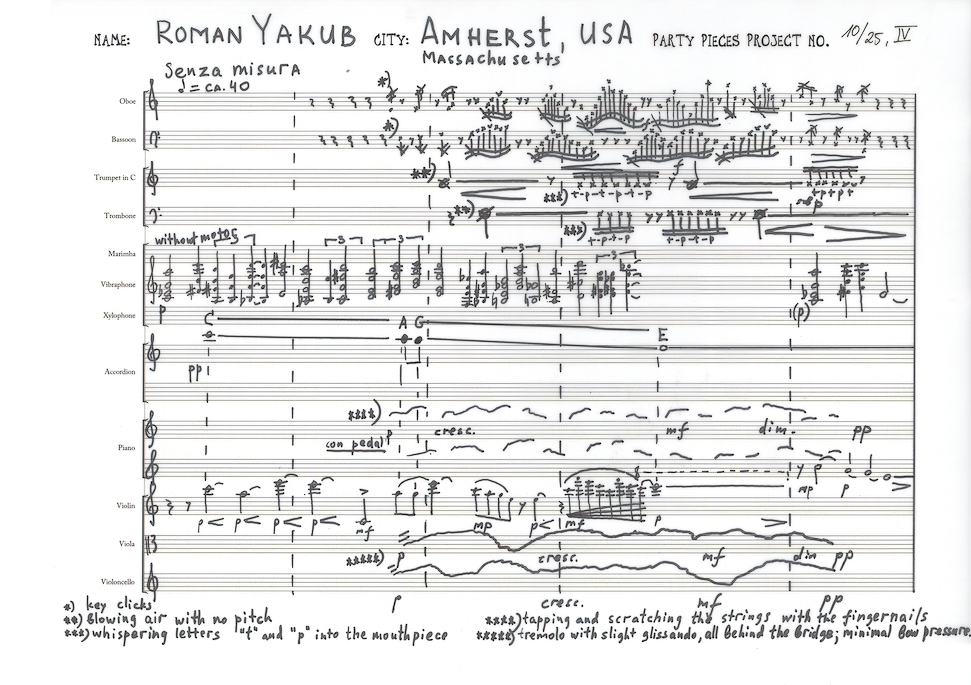 NAME: ROMAN YAKUB CITY: AMHERST, USA PARTY PIECES PROJECT NO. 10/25, IV
Massachusetts
Senza misura
♩= ca. 40
*)
Oboe
*)
Bassoon
**)
Trumpet in C
f
***) t-p-t-p-t-p
t-p-t-p
mp
**)
Trombone
***) t-p-t-p
t-p-t-p
without motor
3 3 3 3
Marimba
Vibraphone
Xylophone
p
(p)
C A G E
pp
Accordion
****)
cresc. mf dim. pp
con pedal p
Piano
mp p
Violin
p < p < p < p < mf mp p < mf p >
Viola
*****) p cresc. mf dim pp
Violoncello
p cresc. mf pp
*) key clicks
**) Blowing air with no pitch
***) whispering letters "t" and "p" into the mouthpiece
****) tapping and scratching the strings with the fingernails
*****) tremolo with slight glissando, all behind the bridge; minimal bow pressure.